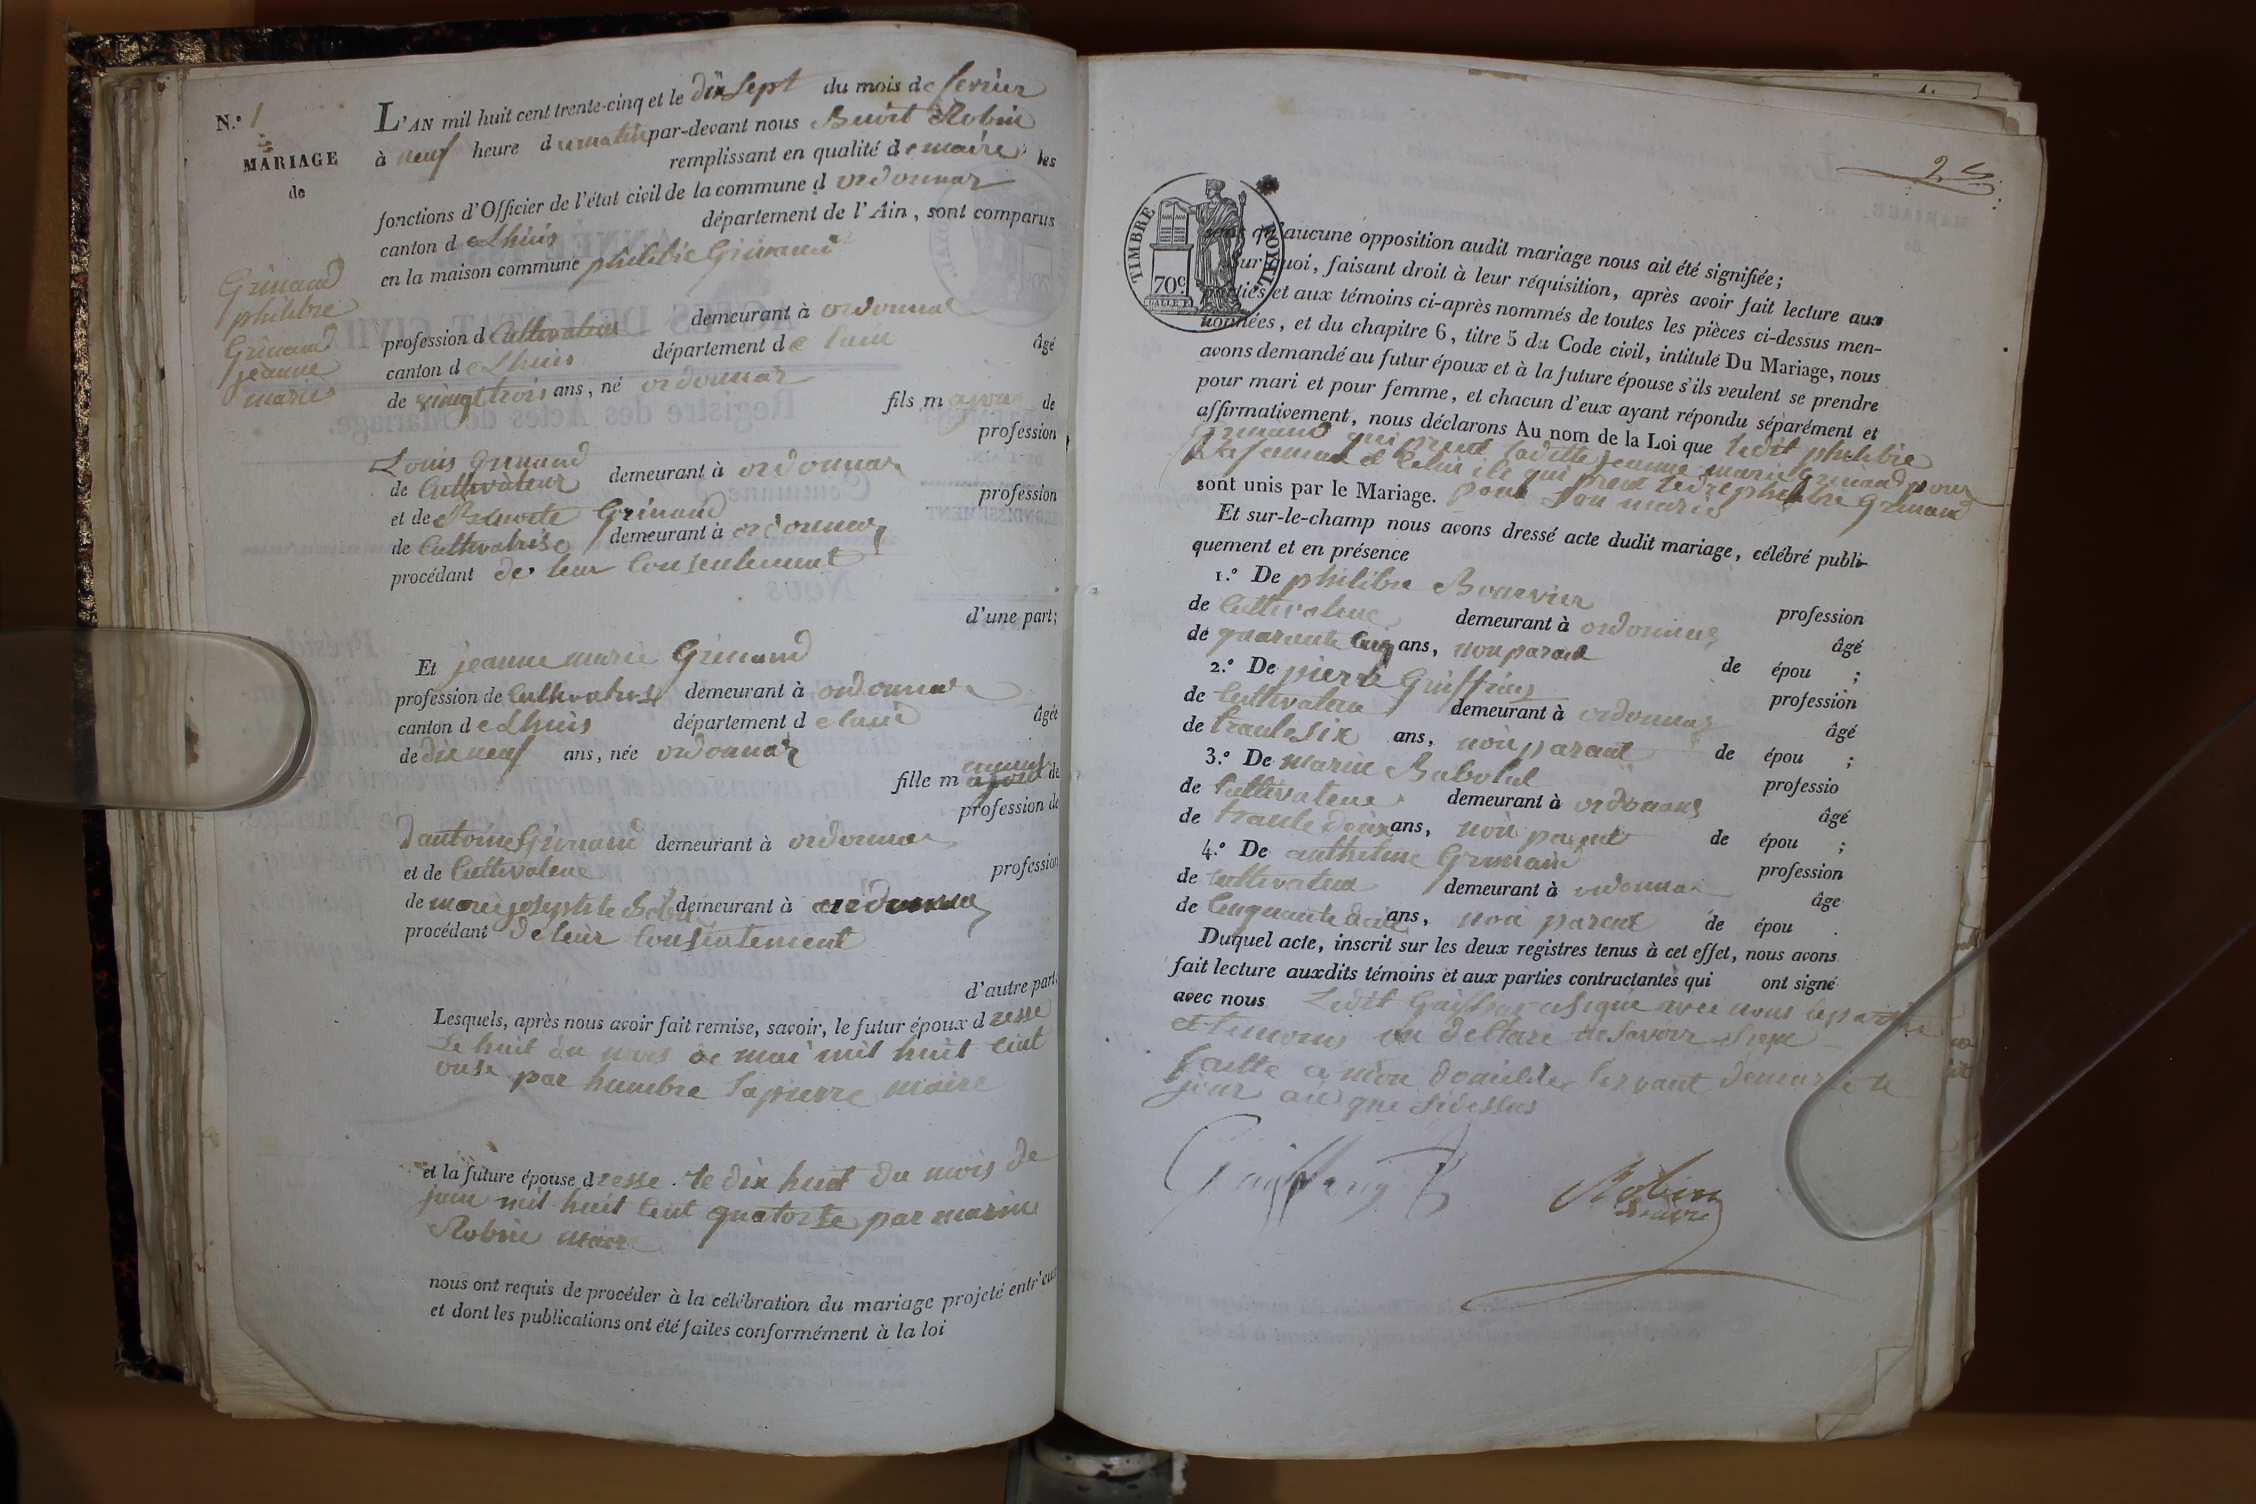 N.° 1
MARIAGE
de
Grinand
philibre
Grinand
jeanne
marie
L'AN mil huit cent trente-cinq et le dix Sept du mois de fevrier
à neuf heure du matin par-devant nous Benoit Robin
remplissant en qualité de maire les
fonctions d'Officier de l'état civil de la commune d ordonnaz
canton de Lhuis département de l'Ain, sont comparus
en la maison commune philibre Grinand
profession d Cultivateur demeurant à ordonnaz
canton de Lhuis département de lain âgé
de vingt trois ans, né ordonnaz
fils m ajour de
Louis Grinand profession
de Cultivateur demeurant à ordonnaz
et de Benoite Grinand profession
de Cultivatrise demeurant à ordonnaz
procédant de leur Consentement
d'une part;
Et jeanne marie Grinand
profession de Cultivatrise demeurant à ordonnaz
canton de Lhuis département de lain âgée
de dix neuf ans, née ordonnaz
fille m de
profession de
d antoine Grinand demeurant à ordonnaz
et de Cultivateur profession
de marie josephte demeurant à ordonnaz
procédant de leur Consentement
d'autre part.
Lesquels, après nous avoir fait remise, savoir, le futur époux d resse
Le huit du mois de mai mil huit Cent
onse par humbre Lapierre maire
et la future épouse d resse . le dix huit du mois de
juin mil huit Cent quatorse par marin
Robin maire
nous ont requis de procéder à la célébration du mariage projeté entr'eux
et dont les publications ont été faites conformément à la loi
2
TIMBRE ROYAL
70c
sans qu'aucune opposition audit mariage nous ait été signifiée;
Sur quoi, faisant droit à leur réquisition, après avoir fait lecture aux
parties et aux témoins ci-après nommés de toutes les pièces ci-dessus men-
tionnées, et du chapitre 6, titre 5 du Code civil, intitulé Du Mariage, nous
avons demandé au futur époux et à la future épouse s'ils veulent se prendre
pour mari et pour femme, et chacun d'eux ayant répondu séparément et
affirmativement, nous déclarons Au nom de la Loi que ledit philibre
Grinand qui prent ladite jeanne marie Grinand pour
Sa femme et qui prent ledit philibre Grinand
sont unis par le Mariage. pour Son marie
Et sur-le-champ nous avons dressé acte dudit mariage, célébré publi-
quement et en présence
1.° De philibre Bonevier profession
de Cultivateur demeurant à ordonnaz âgé
de quarante Cinq ans, non parent de épou ;
2.° De pierre Guiffray profession
de Cultivateur demeurant à ordonnaz âgé
de trante Six ans, non parent de épou ;
3.° De marin Babolat professio
de Cultivateur demeurant à ordonnaz âgé
de trante deux ans, non parent de épou ;
4.° De anthelme Grinand profession
de Cultivateur demeurant à ordonnaz âge
de Cinquante deux ans, non parent de épou .
Duquel acte, inscrit sur les deux registres tenus à cet effet, nous avons
fait lecture auxdits témoins et aux parties contractantes qui ont signé
avec nous Ledit Guiffray a signé avec nous les partie
et temoins on dellaré ne Savoir Signé
faitte a mon domicile Servant de mairie le
jour que Sidessus
Guiffray P
Robin
maire